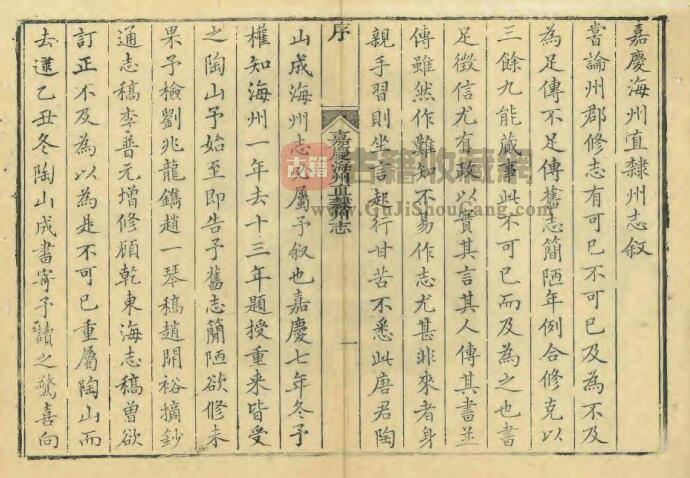 嘉慶海州直隸州志叙
嘗論州郡修志有可已不可已及為不及
為足傳不足傳舊志簡陋年例合修克以
三餘九能蕆事此不可已而及為之也書
足徵信尤有政以實其言其人傳其書並
傳雖然作難知不易作志尤甚非來者身
親手習則坐言起行甘苦不悉此唐君陶
序
嘉慶海州直隸州志
一
山成海州志必屬予叙也嘉慶七年冬予
權知海州一年去十三年題授重來皆受
之陶山予始至即告予舊志簡陋欲修未
果予檢劉兆龍鐫趙一琴稿趙開裕摘鈔
通志稿李普元增修顧乾東海志稿曾欲
訂正不及為以為是不可已重屬陶山而
去逮乙丑冬陶山成書寄予讀之驚喜向
古籍
古籍收藏網
www.GuJiShouCang.com